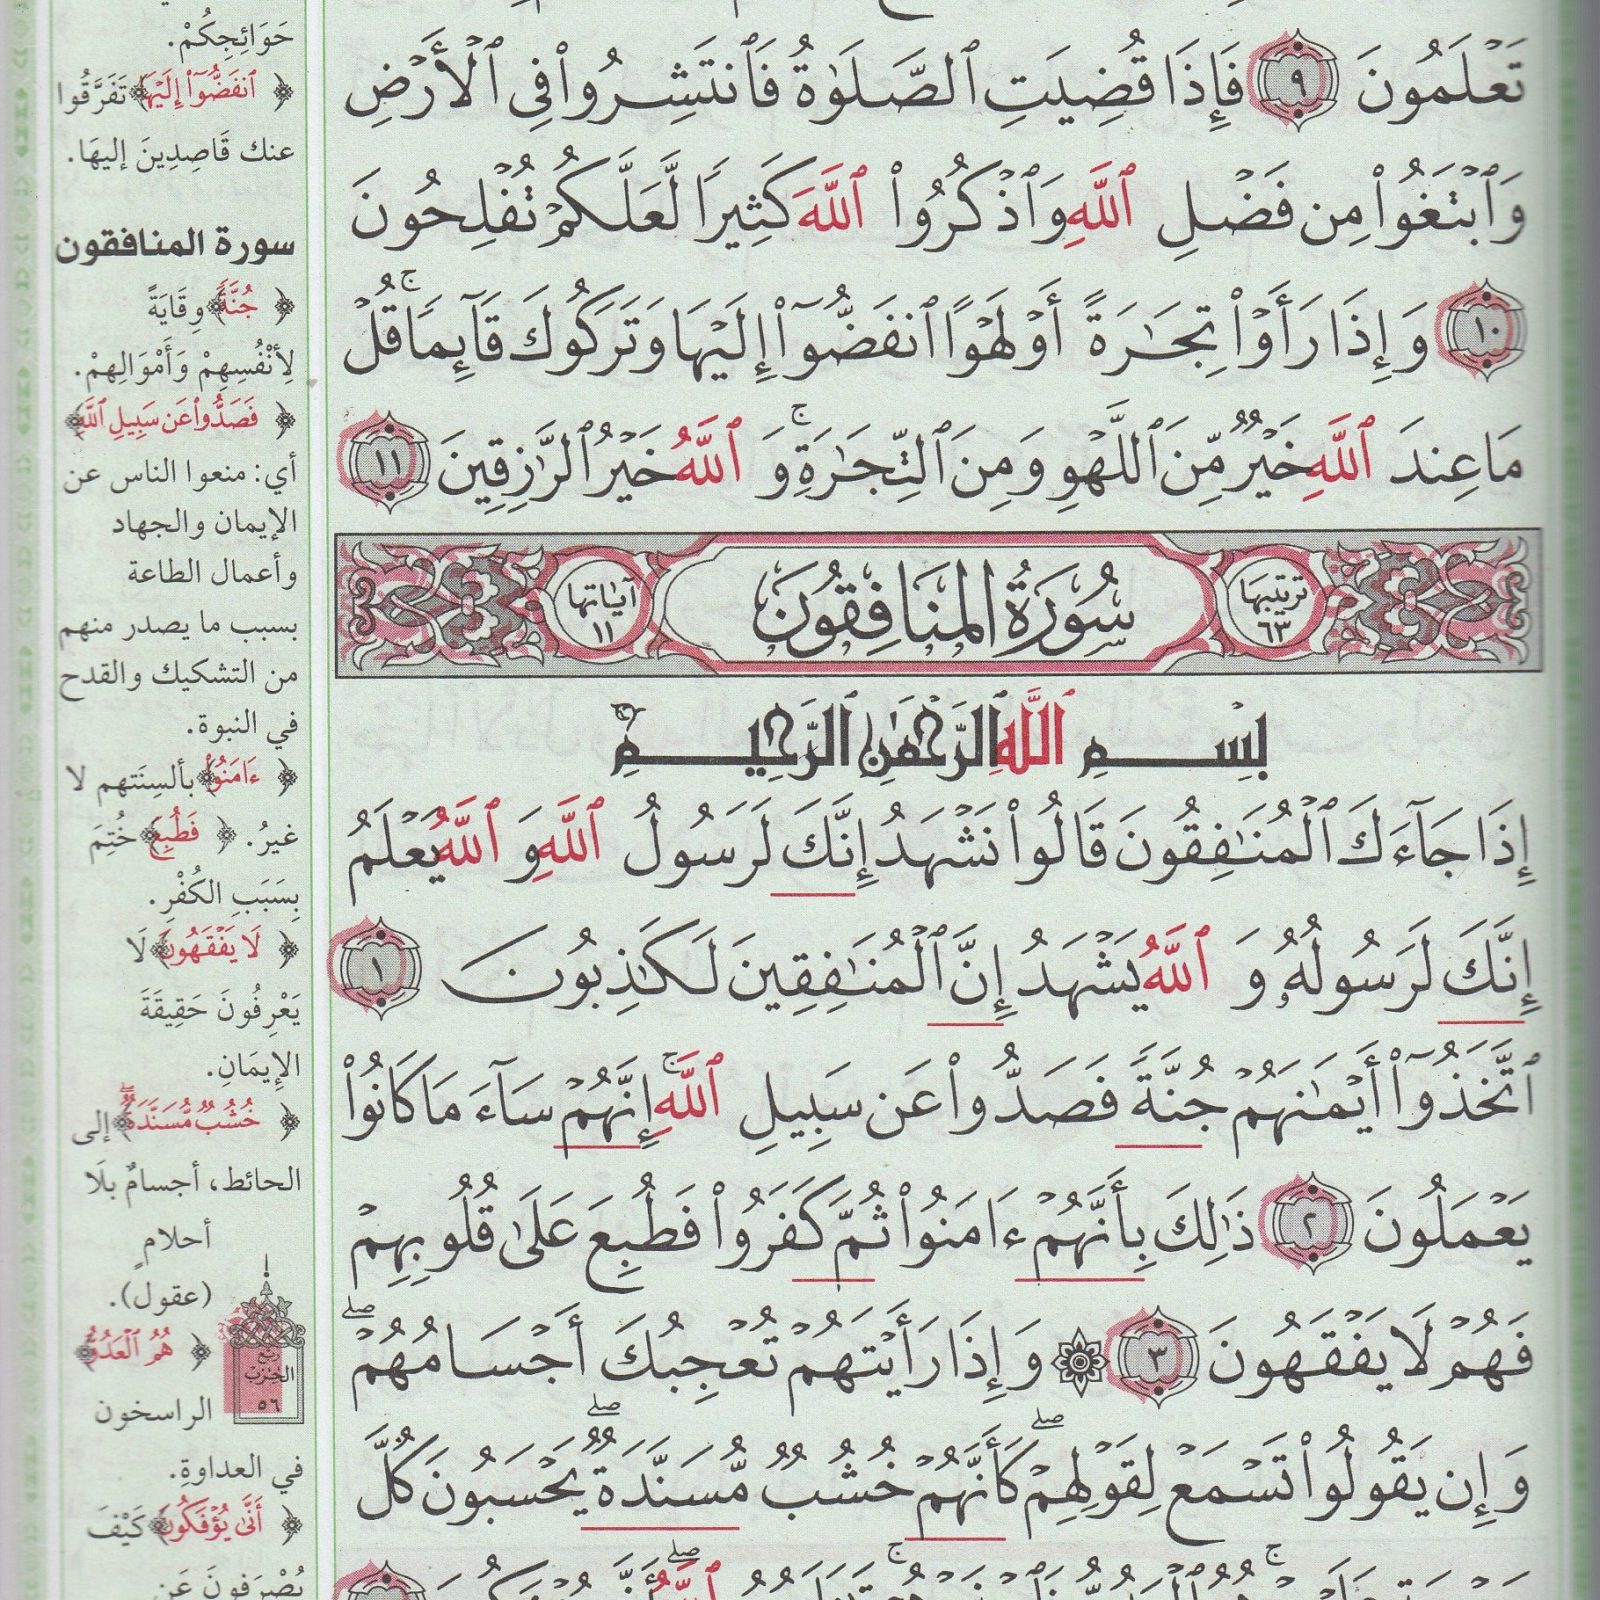 تَعْلَمُونَ ٩ فَإِذَا قُضِيَتِ ٱلصَّلَوٰةُ فَٱنتَشِرُوا۟ فِى ٱلْأَرْضِ
وَٱبْتَغُوا۟ مِن فَضْلِ ٱللَّهِ وَٱذْكُرُوا۟ ٱللَّهَ كَثِيرًا لَّعَلَّكُمْ تُفْلِحُونَ
١٠ وَإِذَا رَأَوْا۟ تِجَـٰرَةً أَوْ لَهْوًا ٱنفَضُّوٓا۟ إِلَيْهَا وَتَرَكُوكَ قَآئِمًا ۚ قُلْ
مَا عِندَ ٱللَّهِ خَيْرٌ مِّنَ ٱللَّهْوِ وَمِنَ ٱلتِّجَـٰرَةِ ۚ وَٱللَّهُ خَيْرُ ٱلرَّٰزِقِينَ ١١
ترتيبها ٦٣ سُورَةُ المنَافِقُونَ آياتها ١١
بِسْمِ ٱللَّهِ ٱلرَّحْمَـٰنِ ٱلرَّحِيمِ
إِذَا جَآءَكَ ٱلْمُنَـٰفِقُونَ قَالُوا۟ نَشْهَدُ إِنَّكَ لَرَسُولُ ٱللَّهِ وَٱللَّهُ يَعْلَمُ
إِنَّكَ لَرَسُولُهُۥ وَٱللَّهُ يَشْهَدُ إِنَّ ٱلْمُنَـٰفِقِينَ لَكَـٰذِبُونَ ١
ٱتَّخَذُوٓا۟ أَيْمَـٰنَهُمْ جُنَّةً فَصَدُّوا۟ عَن سَبِيلِ ٱللَّهِ ۚ إِنَّهُمْ سَآءَ مَا كَانُوا۟
يَعْمَلُونَ ٢ ذَٰلِكَ بِأَنَّهُمْ ءَامَنُوا۟ ثُمَّ كَفَرُوا۟ فَطُبِعَ عَلَىٰ قُلُوبِهِمْ
فَهُمْ لَا يَفْقَهُونَ ٣ ۞ وَإِذَا رَأَيْتَهُمْ تُعْجِبُكَ أَجْسَامُهُمْ ۖ
وَإِن يَقُولُوا۟ تَسْمَعْ لِقَوْلِهِمْ ۖ كَأَنَّهُمْ خُشُبٌ مُّسَنَّدَةٌ ۖ يَحْسَبُونَ كُلَّ
حَوَائِجِكُمْ.
﴿ٱنفَضُّوٓا۟ إِلَيْهَا﴾ تَفَرَّقُوا
عنك قَاصِدِينَ إليهَا.
سورة المنافقون
﴿جُنَّةً﴾ وِقَايَةً
لِأَنْفُسِهِمْ وَأَمْوَالِهِمْ.
﴿فَصَدُّوا۟ عَن سَبِيلِ ٱللَّهِ﴾
أي: منعوا الناس عن
الإيمان والجهاد
وأعمال الطاعة
بسبب ما يصدر منهم
من التشكيك والقدح
في النبوة.
﴿ءَامَنُوا۟﴾ بألسِنَتهم لا
غيرُ. ﴿فَطُبِعَ﴾ خُتِمَ
بِسَبَبِ الكُفْرِ.
﴿لَا يَفْقَهُونَ﴾ لَا
يَعْرِفُونَ حَقِيقَةَ
الإِيمَانِ.
﴿خُشُبٌ مُّسَنَّدَةٌ﴾ إلى
الحائط، أجسامٌ بلَا
أحلامٍ
(عقول).
﴿هُمُ ٱلْعَدُوُّ﴾
الراسخون
في العداوةِ.
﴿أَنَّىٰ يُؤْفَكُونَ﴾ كَيْفَ
يُصْرَفونَ عَن
ربع
الحزب
٥٦